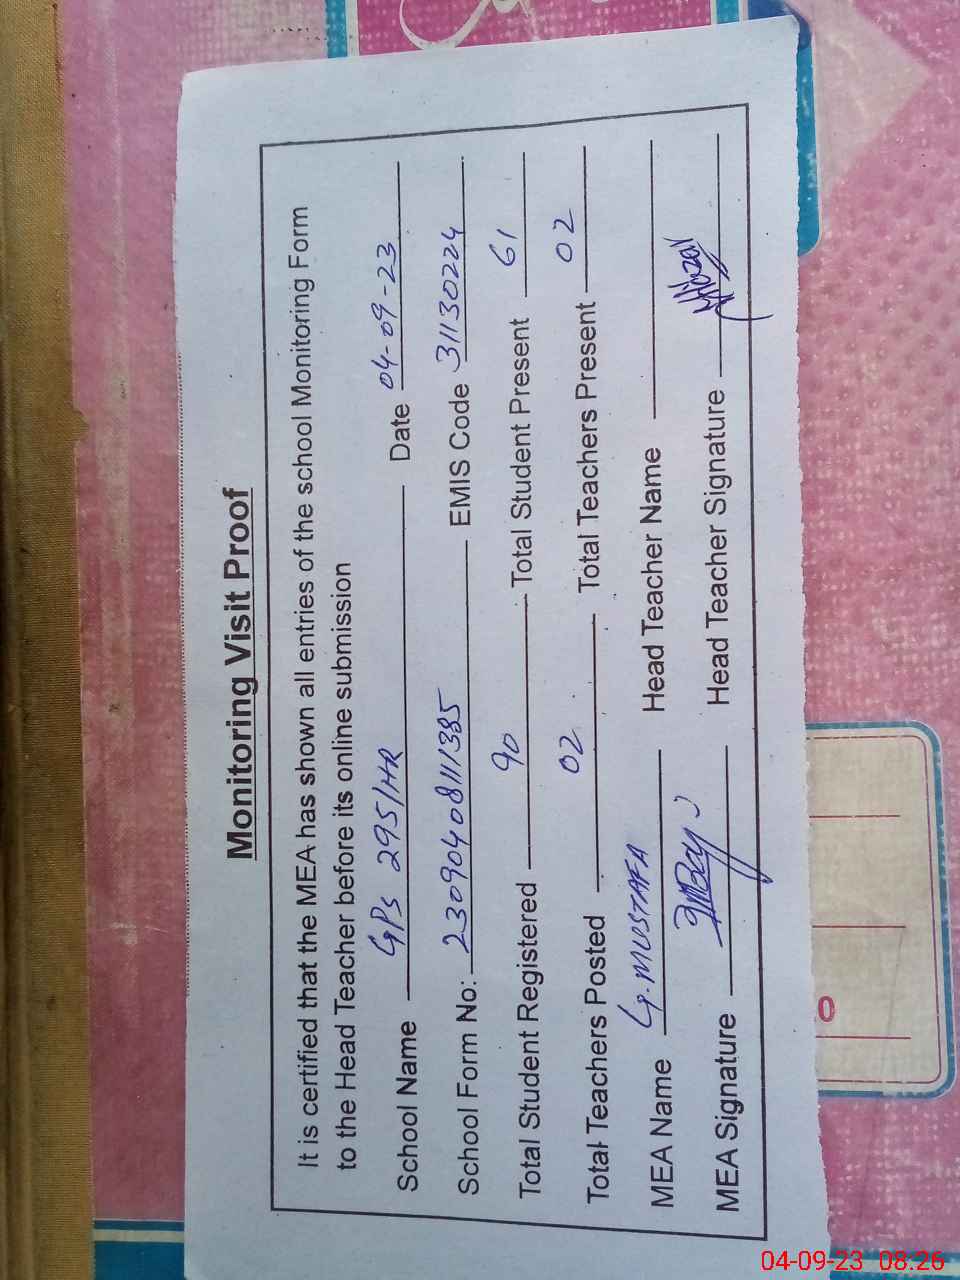 Monitoring Visit Proof
It is certified that the MEA has shown all entries of the school Monitoring Form
to the Head Teacher before its online submission
School Name GPS 295/HR Date 04-09-23
School Form No: 23090408111385 EMIS Code 31130224
Total Student Registered 90 Total Student Present 61
Total Teachers Posted 02 Total Teachers Present 02
MEA Name G. MUSTAFA Head Teacher Name
MEA Signature Head Teacher Signature
04-09-23 08:26